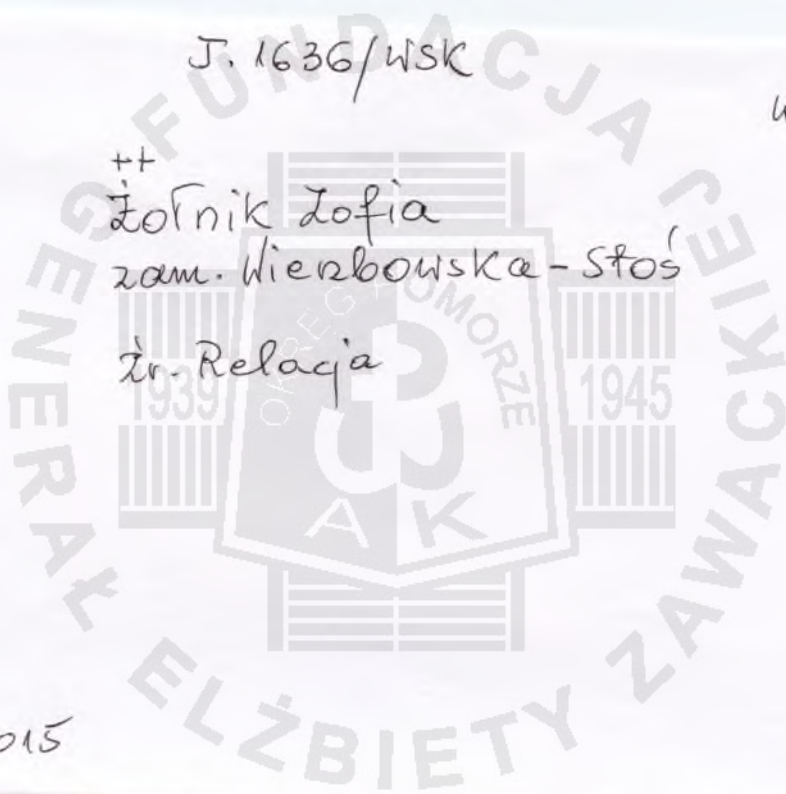 J. 1636/WSK
++
Żołnik Zofia
zam. Wierzbowska-Stoś
źr. Relacja
FUNDACJA GENERAŁ ELŻBIETY ZAWACKIEJ
OKRĘG POMORZE
1939
1945
AK